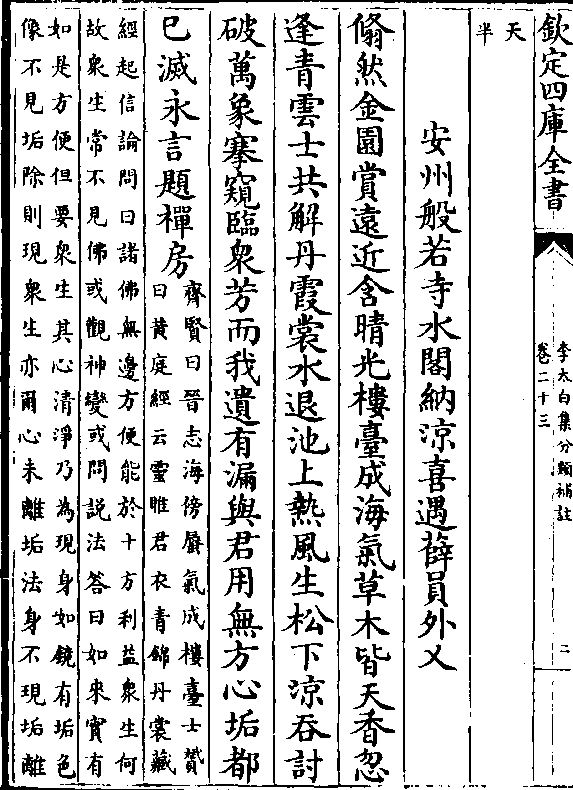 欽定四庫全書
李太白集分類補註
卷二十三
二
天
半
安州般若寺水閣納涼喜遇薛員外乂
翛然金園賞遠近含晴光樓臺成海氣草木皆天香忽
逢青雲士共解丹霞裳水退池上熱風生松下涼吞討
破萬象搴窺臨衆芳而我遺有漏與君用無方心垢都
已滅永言題禪房
齊賢曰晉志海傍蜃氣成樓臺士贇
曰黄庭經云靈雎君衣青錦丹裳藏
經起信論問曰諸佛無邊方便能於十方利益衆生何
故衆生常不見佛或觀神變或問説法答曰如來實有
如是方便但要衆生其心清淨乃為現身如鏡有垢色
像不見垢除則現衆生亦爾心未離垢法身不現垢離